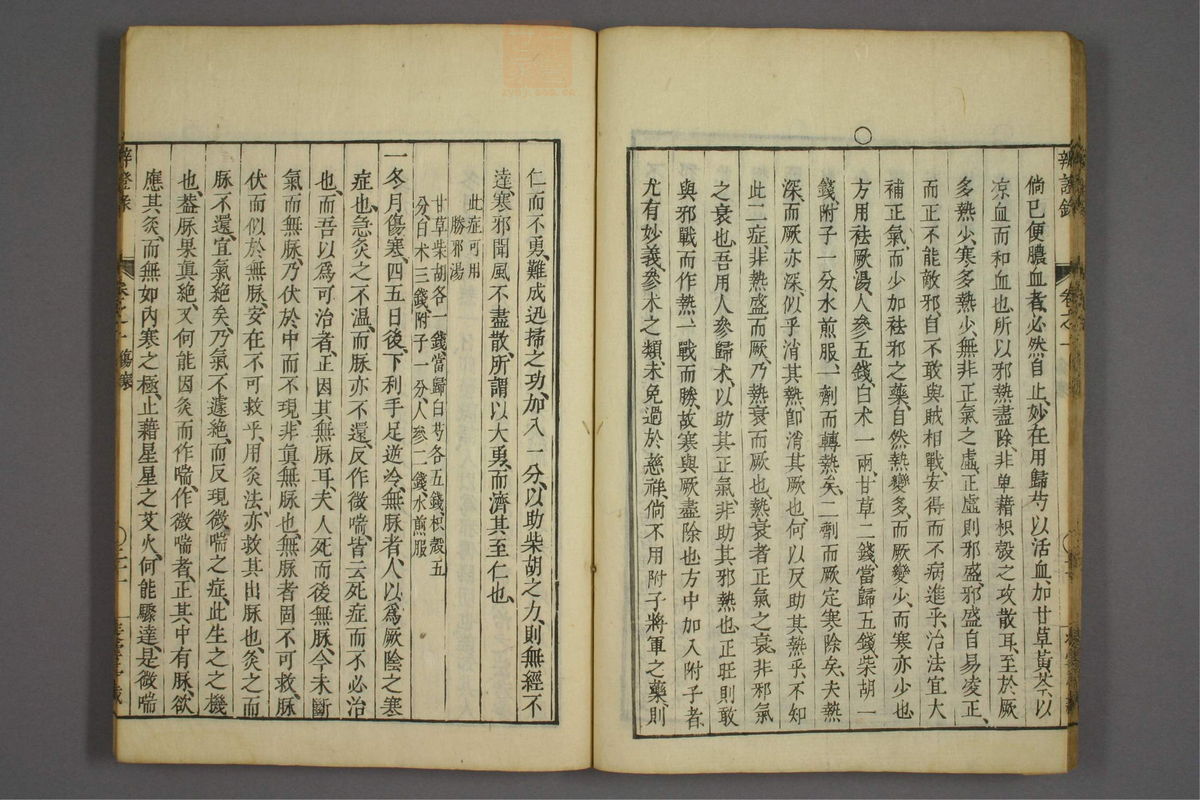 倘已便膿血者、必然自止、妙在用歸芍以活血、加甘草黃芩以
凉血而和血也、所以邪熱盡除、非單藉枳殼之攻散耳、至於厥
多熱少、寒多熱少、無非正氣之虛、正虛則邪盛、邪盛自易凌正、
而正不能敵邪、自不敢與賊相戰、安得而不病進乎、治法宜大
補正氣而少加袪邪之藥、自然熱變多、而厥變少、而寒亦少也
○
方用袪厥湯、人參五錢、白术一兩、甘草二錢、當歸五錢、柴胡一
錢、附子一分、水煎服、一劑而轉熱矣、二劑而厥定寒除矣、夫熱
深、而厥亦深、似乎消其熱即消其厥也、何以反助其熱乎、不知
此二症、非熱盛而厥、乃熱衰而厥也、熱衰者正氣之衰、非邪氣
之衰也、吾用人參歸术、以助其正氣、非助其邪熱也、正旺則敢
與邪戰而作熱、一戰而勝、故寒與厥盡除也、方中加入附子者、
尤有妙義、參术之類、未免過於慈祥、倘不用附子將軍之藥、則
辨證錄
卷之一
仁而不勇、難成迅掃之功、加入一分、以助柴胡之力、則無經不
達、寒邪聞風不盡散、所謂以大勇、而濟其至仁也、
此症可用
勝邪湯
甘草柴胡各一錢當歸白芍各五錢枳殼五
分、白术三錢、附子一分、人參二錢、水煎服
一冬月傷寒、四五日後、下利手足逆冷、無脉者、人以爲厥陰之寒
症也、急灸之不温、而脉亦不還、反作微喘、皆云死症而不必治
也、而吾以爲可治者、正因其無脉耳、夫人死而後無脉、今未斷
氣而無脉、乃伏於中而不現、非眞無脉也、無脉者固不可救、脉
伏而似於無脉、安在不可救乎、用灸法、亦救其出脉也、灸之而
脉不還、宜氣絕矣、乃氣不遽絕、而反現微喘之症、此生之之機
也、葢脉果眞絕、又何能因灸而作喘、作微喘者、正其中有脉、欲
應其灸、而無如内寒之極、止藉星星之艾火、何能驟達、是微喘
辨證錄
卷之一
傷寒